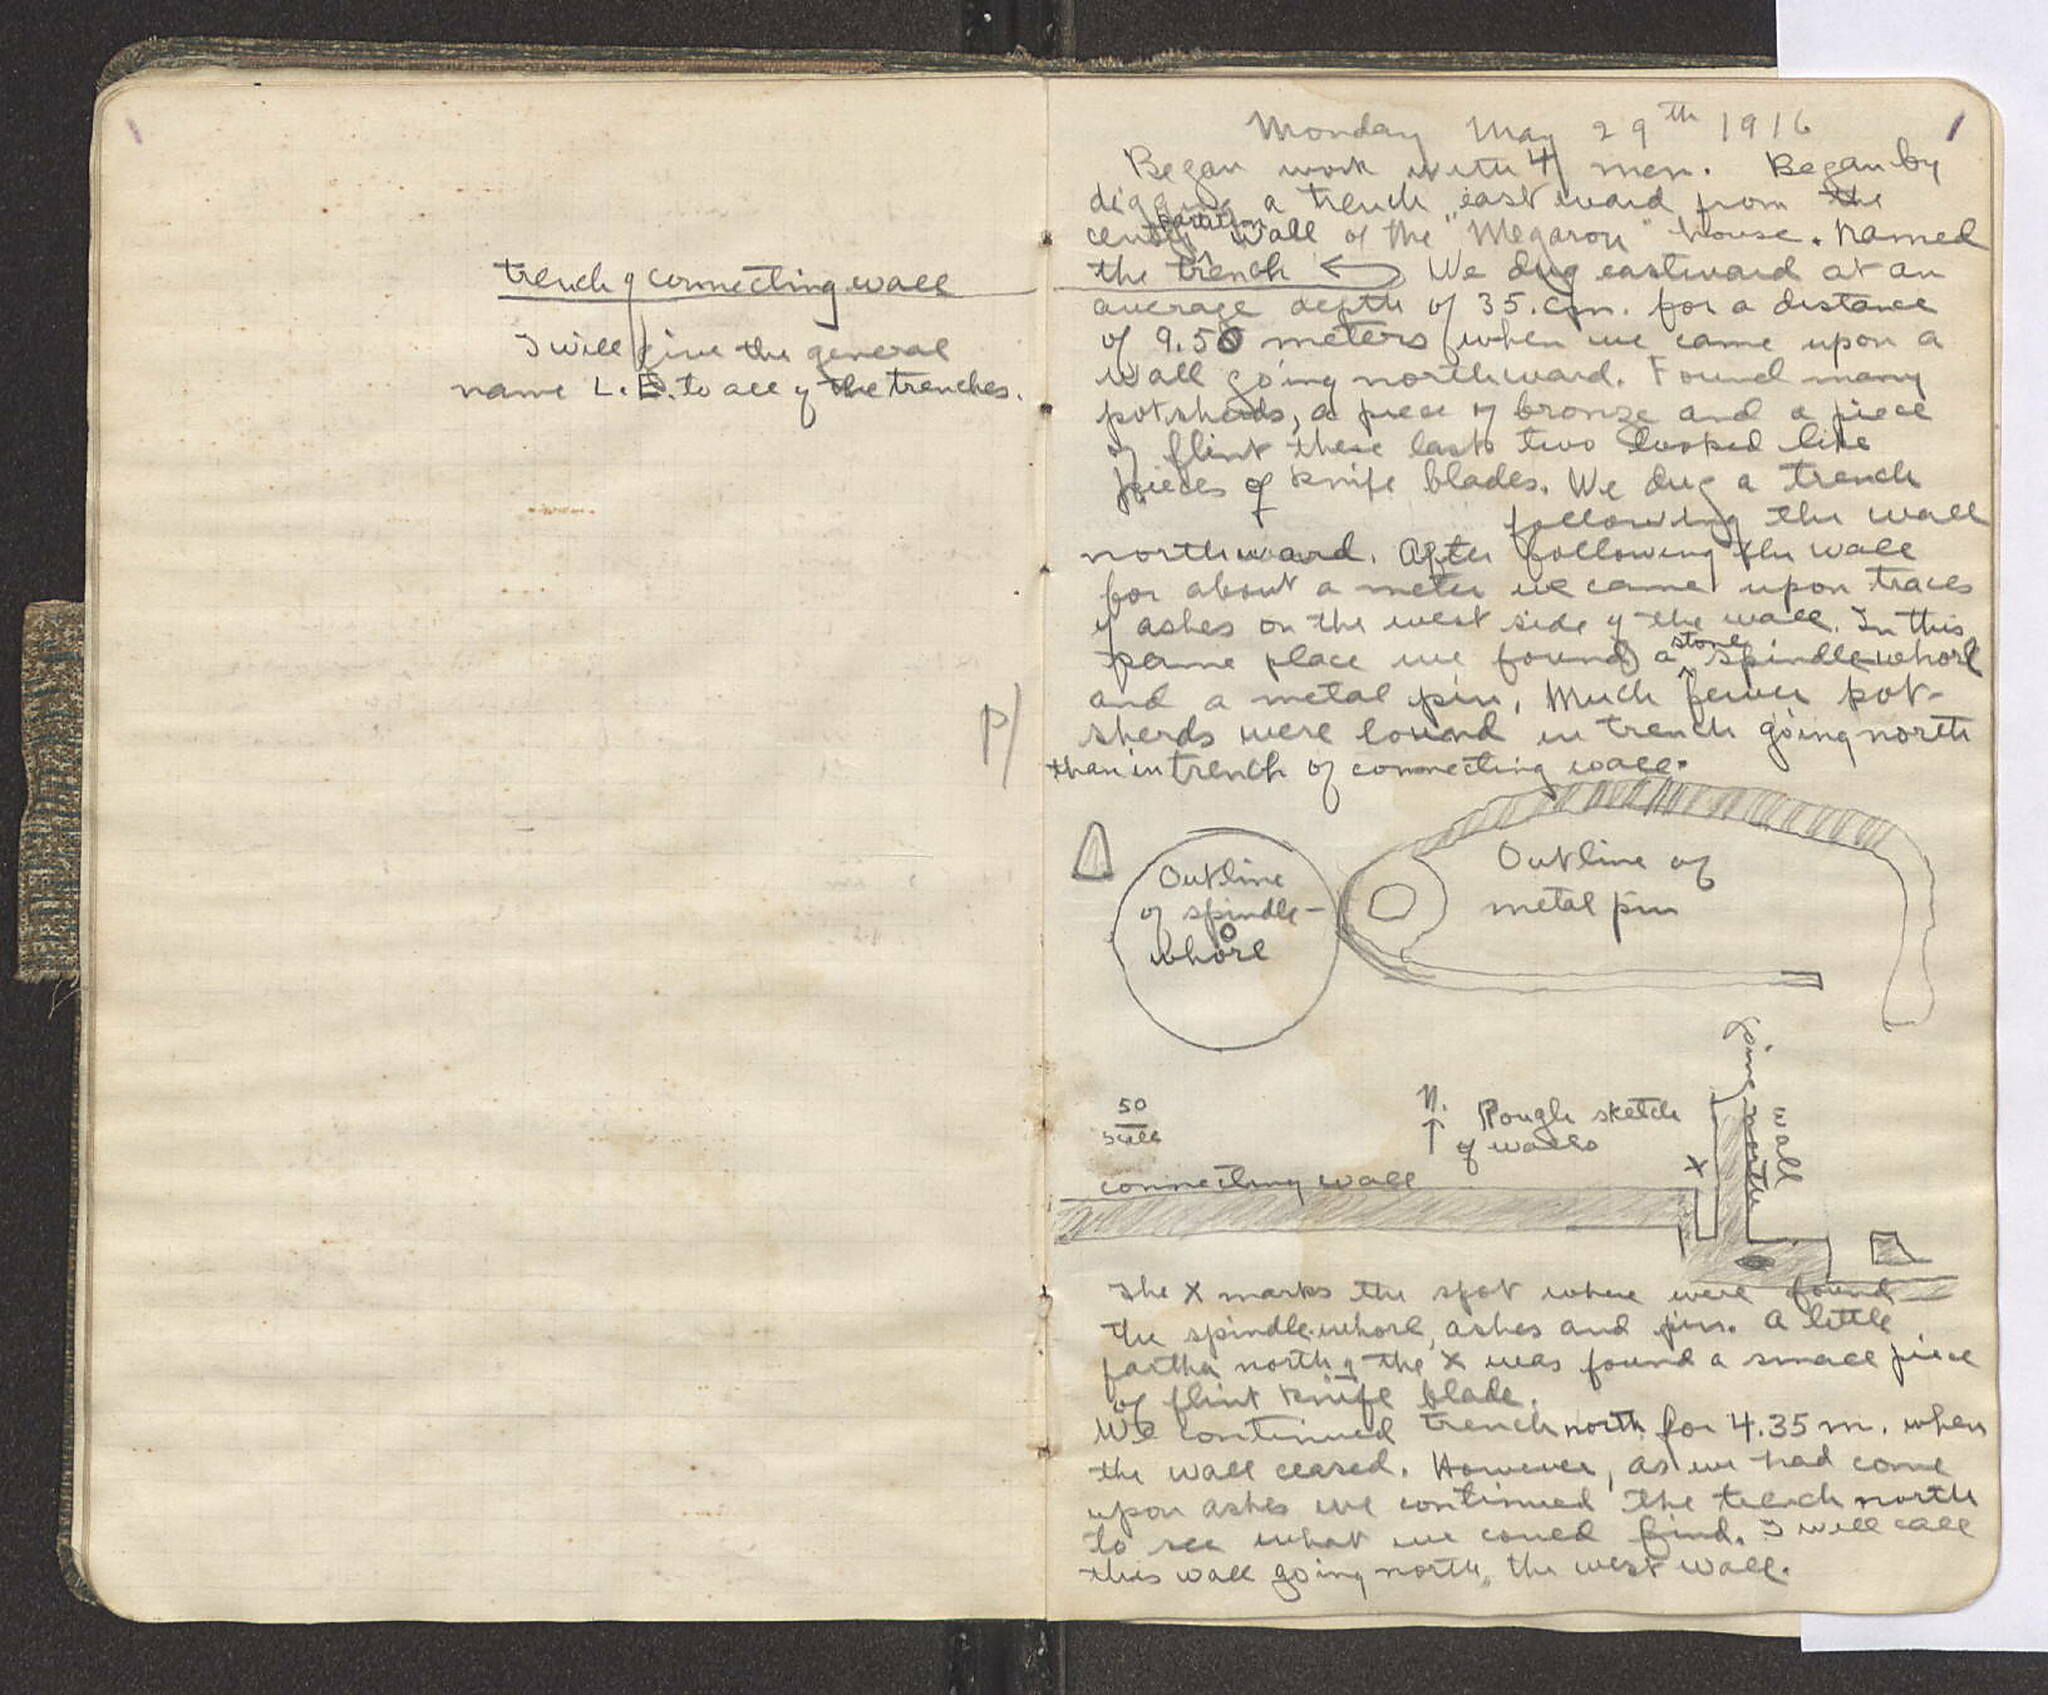 trench of connecting wall
I will give the general
name L.E. to all of the trenches.
P/
1
Monday May 29th 1916
Began work with 4 men. Began by
digging a trench eastward from the
partition
wall of the "Megaron" house. Named
the trench ← We dug eastward at an
average depth of 35.cm. for a distance
of 9.50 meters when we came upon a
wall going northward. Found many
potsherds, a piece of bronze and a piece
of flint these last two looked like
pieces of knife blades. We dug a trench
following the wall
northward. After following the wall
for about a meter we came upon traces
of ashes on the west side of the wall. In this
same place we found a stone spindlewhorl
and a metal pin. Much fewer pot-
sherds were found in trench going north
than in trench of connecting wall.
Outline
of spindle-
whorl
Outline of
metal pin
50
scale
N.
↑
Rough sketch
of walls
going north
wall
X
connecting wall
The X marks the spot where were found
the spindlewhorl, ashes and pin. A little
farther north of the X was found a small piece
of flint knife blade.
We continued trench north for 4.35 m. when
the wall ceased. However, as we had come
upon ashes we continued the trench north
to see what we could find. I will call
this wall going north, the west wall.